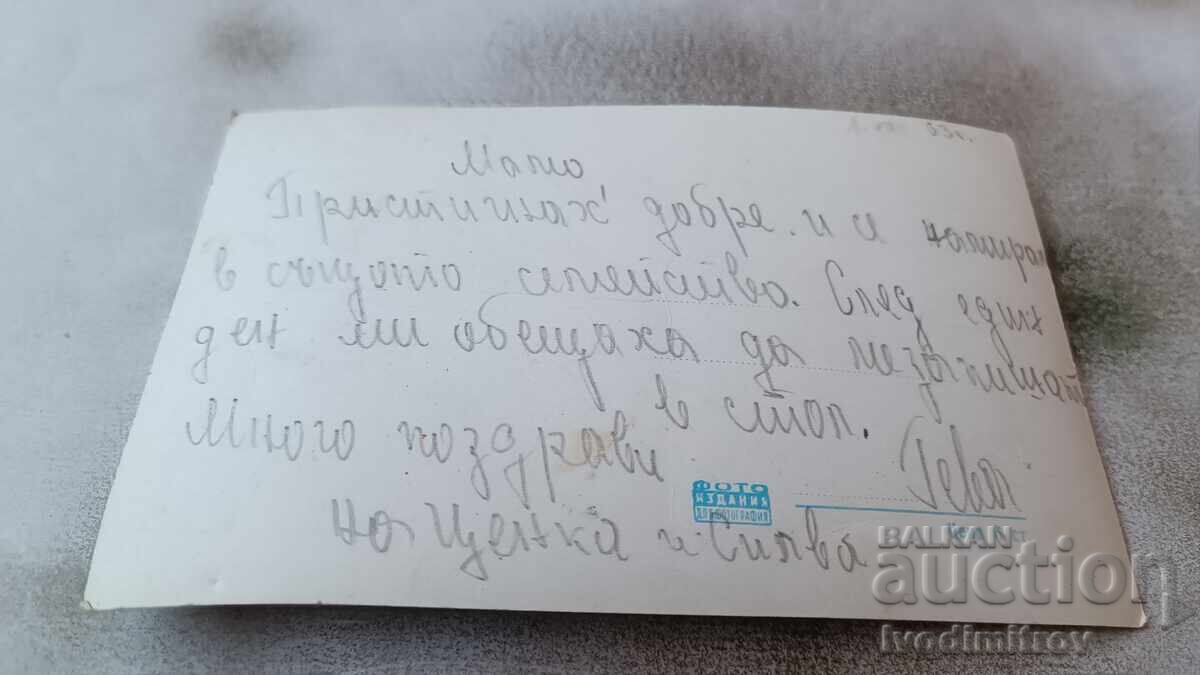 63г.
Мамо
Пристигнах добре. и се намирам
в същото семейство. След един
ден ми обещаха да ме запишат
в стол.
Много поздрави
на Ценка и Силва
ФОТО
ИЗДАНИЯ
ДПК ФОТОГРАФИЯ
BALKAN
auction
Ivodimitrov